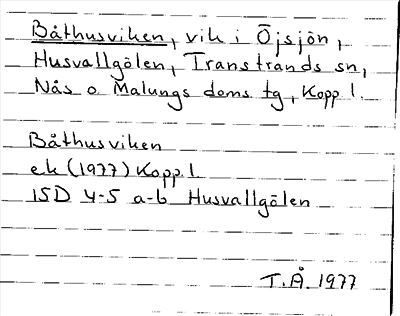 Båthusviken, vik i Öjsjön,
Husvallgölen, Transtrands sn,
Nås o. Malungs doms. tg, Kopp l.
Båthusviken
ek (1977) Kopp l.
15D 4-5 a-b Husvallgölen
T.Å. 1977